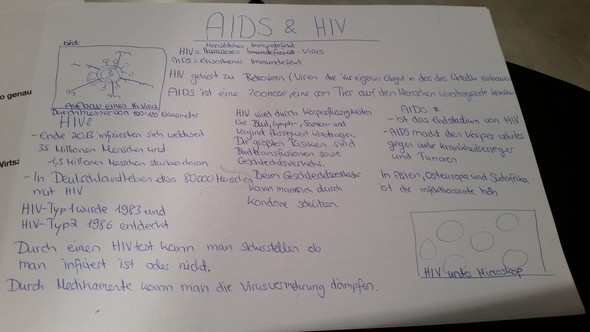 AIDS & HIV
o genau
Wirts:
Bild:
Aufbau eines HI-Virus
Durchmesser von 100-120 Nanometer
Menschliches Immundefekt
HIV = -Virus
AIDS = Erworbenes Immundefekt
HIV gehört zu Retroviren (Viren die ihr eigenes Erbgut in das des Wirts
AIDS ist eine Zoonose, eine vom Tier auf den Menschen übertragbare
HIV:
- Ende 2013 infizierten sich weltweit
35 Millionen Menschen und
1,5 Millionen Menschen starben daran
- In Deutschland leben etwa 80000 Menschen
mit HIV
HIV-Typ 1 wurde 1983 und
HIV-Typ 2 1986 entdeckt
HIV wird durch Körperflüssigkeiten
wie Blut, Lymph-, Samen- und
Vaginalflüssigkeit übertragen.
Die größten Risiken sind
Bluttransfusionen sowie
Geschlechtsverkehr.
Beim Geschlechtsverkehr
kann man sich durch
Kondome schützen
AIDS
- ist das Endstadium von HIV
- AIDS macht den Körper wehrlos
gegen viele Krankheitserreger
und Tumoren
In Asien, Osteuropa und Südafrika
ist die Infektionsrate hoch
HIV unter Mikroskop
Durch einen HIV test kann man sicherstellen ob
man infiziert ist oder nicht.
Durch Medikamente kann man die Virusvermehrung dämpfen.